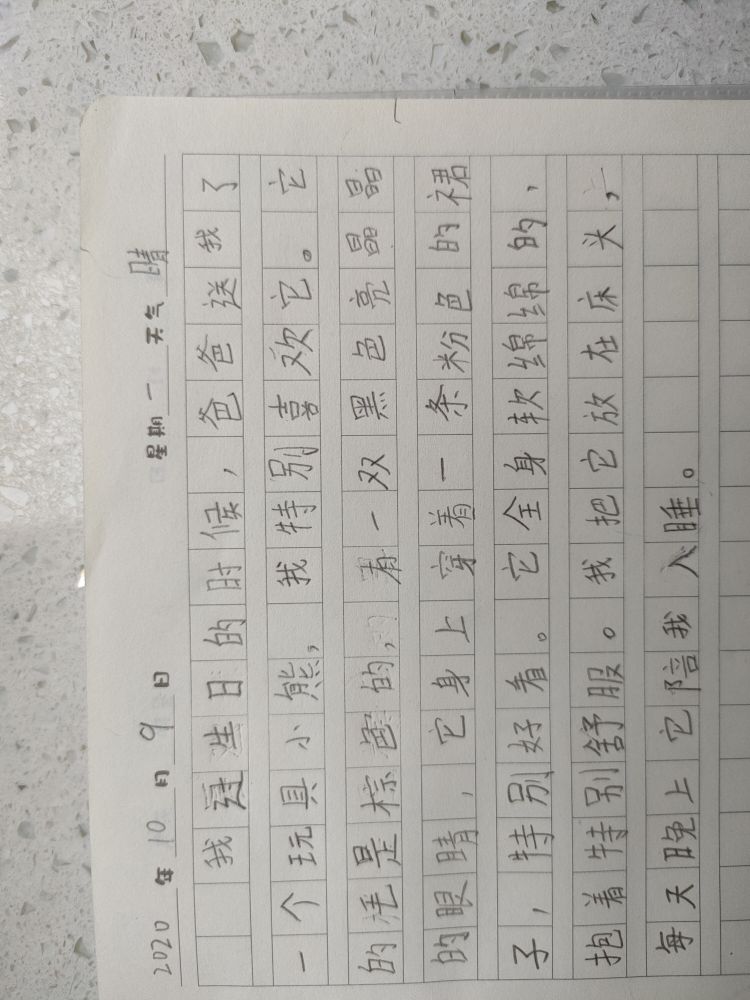 2020年10月9日 星期一 天气 晴
我过生日的时候，爸爸送我了
一个玩具小熊，我特别喜欢它。它
的毛是棕色的，有一双黑色亮晶晶
的眼睛，它身上穿着一条粉色的裙
子，特别好看。它全身软绵绵的，
抱着特别舒服。我把它放在床头，
每天晚上它陪我入睡。